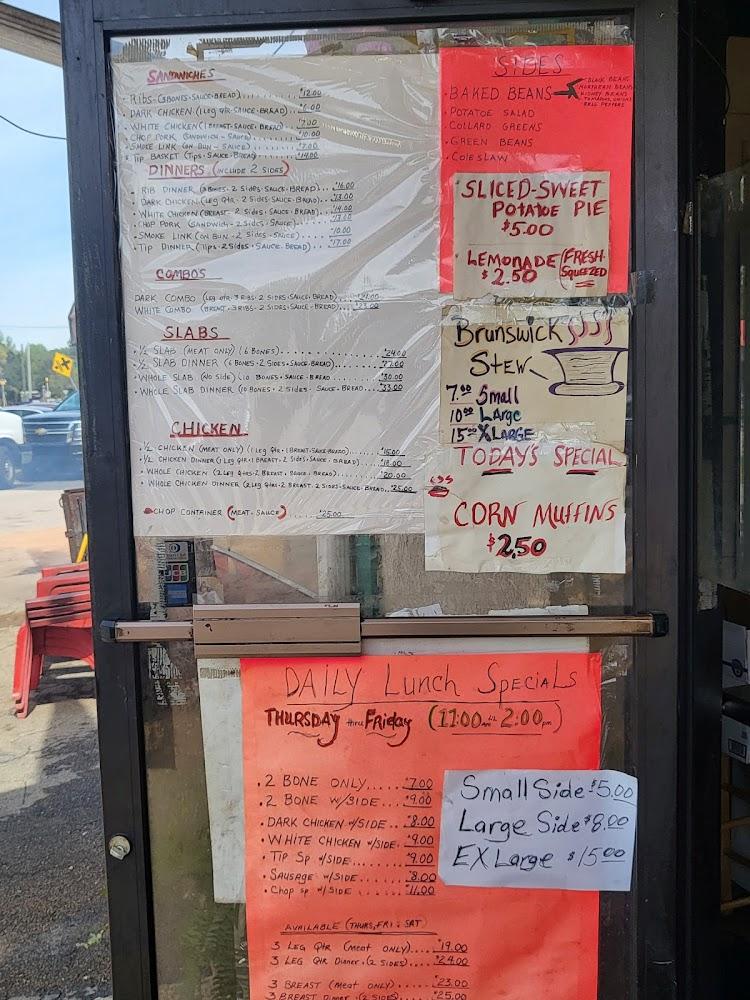 SANDWICHES
Ribs (3 BONES·SAUCE·BREAD) $12.00
DARK CHICKEN (1 Leg Qtr·SAUCE·BREAD) $6.00
WHITE CHICKEN (1 BREAST·SAUCE·BREAD) $7.00
CHOP PORK (SANDWICH-SAUCE) $10.00
SMOKE LINK (ON BUN-SAUCE) $7.00
TIP BASKET (Tips·SAUCE·BREAD) $14.00
DINNERS (INCLUDE 2 SIDES)
RIB DINNER (3 BONES·2 Sides·SAUCE·BREAD)... $16.00
DARK CHICKEN (Leg Qtr·2 Sides·SAUCE·BREAD)...
WHITE CHICKEN (BREAST·2 SIDES·SAUCE·BREAD)... $14.00
CHOP PORK (SANDWICH-2 SIDES·SAUCE)
SMOKE LINK (ON BUN·2 Sides·SAUCE) $10.00
Tip DINNER (Tips·2 Sides·SAUCE·BREAD)... $17.00
COMBO'S
DARK COMBO (Leg Qtr·3 RIBS·2 SIDES·SAUCE·BREAD)...
WHITE COMBO (BREAST·3 RIBS·2 SIDES·SAUCE·BREAD)...
SLABS
½ SLAB (MEAT ONLY) (6 BONES)... $24.00
½ SLAB DINNER (6 BONES·2 SIDES·SAUCE·BREAD)...
WHOLE SLAB (No SIDE) (10 BONES·SAUCE·BREAD... $30.00
WHOLE SLAB DINNER (10 BONES·2 SIDES·SAUCE·BREAD... $33.00
CHICKEN
½ CHICKEN (MEAT ONLY) (1 Leg Qtr·1 BREAST·SAUCE·BREAD)... $15.00
½ CHICKEN DINNER (1 Leg Qtr·1 BREAST·2 SIDES·SAUCE·BREAD)... $18.00
WHOLE CHICKEN (2 Leg Qtrs·2 BREAST·SAUCE·BREAD)... $20.00
WHOLE CHICKEN DINNER (2 Leg Qtrs·2 BREAST·2 SIDES·SAUCE·BREAD.. $25.00
CHOP CONTAINER (MEAT-SAUCE) .... $25.00
SIDES
BAKED BEANS
BLACK BEANS
NORTHERN BEANS
KIDNEY BEANS
TOMATOES, ONIONS
BELL PEPPERS
POTATOE SALAD
COLLARD GREENS
GREEN BEANS
COLESLAW
SLICED-SWEET
POTATOE PIE
$5.00
LEMONADE (FRESH
$2.50 SQUEEZED
Brunswick
STEW
7.00 Small
10.00 Large
15.00 XLARGE
TODAY'S SPECIAL
CORN MUFFINS
$2.50
DAILY Lunch SPECIALS
THURSDAY thru FRiday (11:00am til 2:00pm)
2 BONE ONLY..... $7.00
2 BONE W/SIDE... $9.00
DARK CHICKEN W/SIDE.. $8.00
WHITE CHICKEN W/SIDE. $9.00
Tip Sp W/SIDE.... $9.00
SAUSAGE W/SIDE.... $8.00
Chop sp W/SIDE... $11.00
Small Side $5.00
Large Side $8.00
EX Large $15.00
AVAILABLE (THURS, FRI & SAT)
3 LEG Qtr (meat ONLY).... $19.00
3 LEG Qtr Dinner.(2 SIDES).... $24.00
3 BREAST (Meat ONLY)..... $23.00
3 BREAST Dinner (2 SIDES)... $25.00